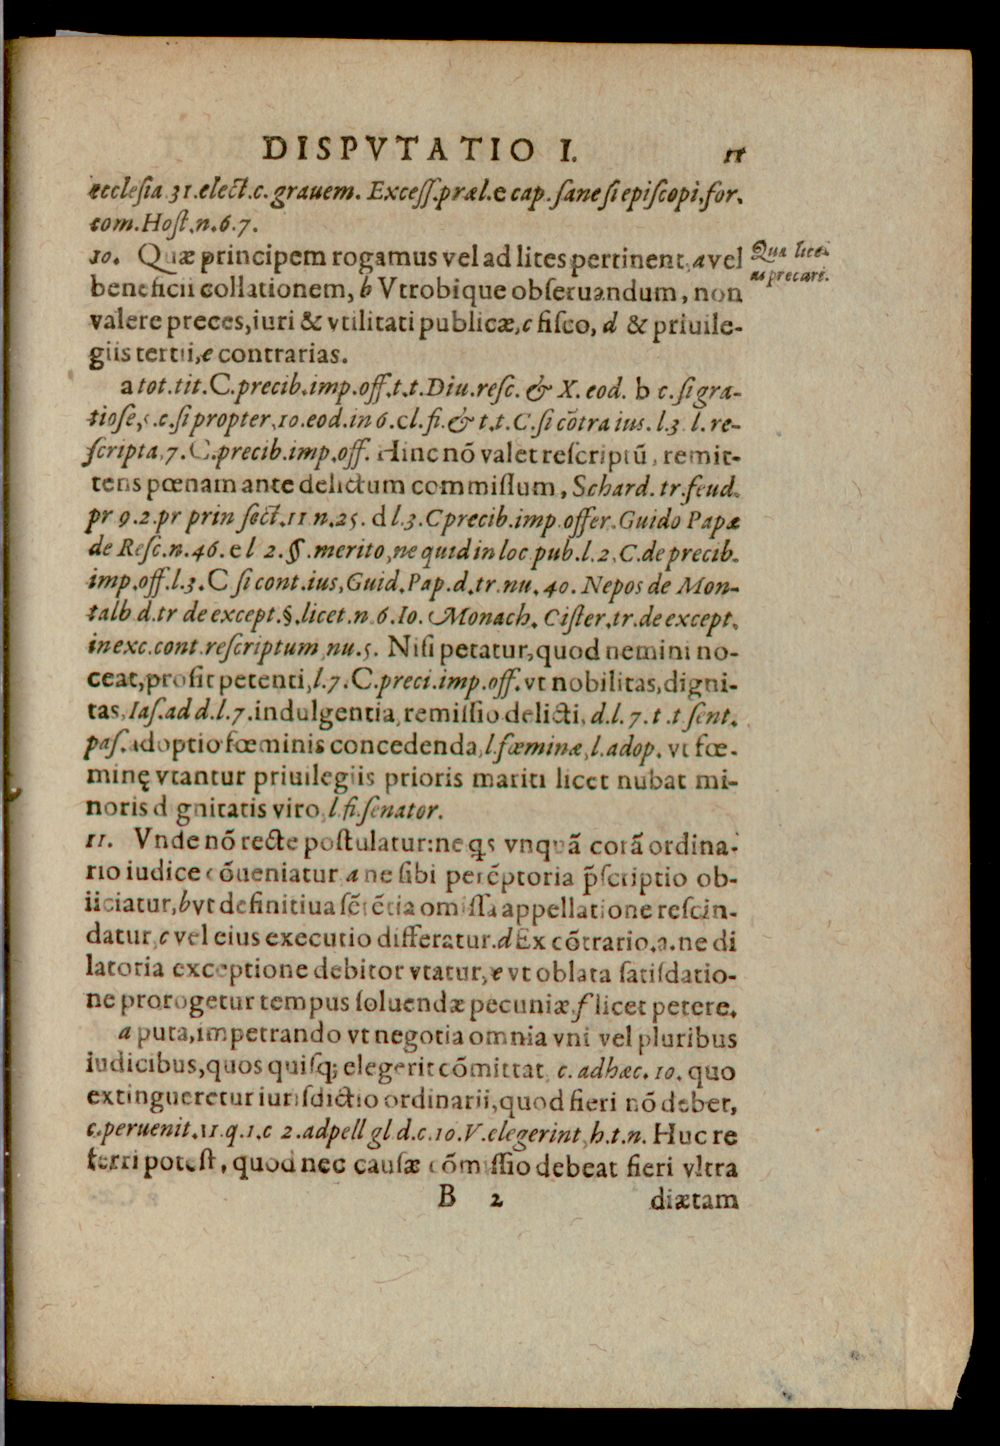 DISPVTATIO I. 11
ecclesia 31. elect. c. grauem. Excess. præl. e cap. sane si episcopi, for.
com. Host. n. 6. 7.
10. Quæ principem rogamus vel ad lites pertinent, a vel
beneficii collationem, b Vtrobique obseruandum, non
valere preces, iuri & vtilitati publicæ, c fisco, d & priuile-
giis tertii, e contrarias.
Qua licet
precari.
a tot. tit. C. precib. imp. off. t. t. Diu. resc. & X. eod. b c. si gra-
tiose, 5. c. si propter, 10. eod. in 6. cl. fi. & t. t. C. si cōtra ius. l. 3. l. re-
scripta, 7. C. precib. imp. off. Hinc nō valet rescriptū, remit-
tens pœnam ante delictum commissum, Schard. tr. feud.
pr 9. 2. pr prin sect. 11 n. 25. d l. 3. C precib. imp. offer. Guido Papæ
de Resc. n. 46. e l 2. §. merito, ne quid in loc pub. l. 2, C. de precib.
imp. off. l. 3. C si cont. ius, Guid. Pap. d. tr. nu. 40. Nepos de Mon-
talb d. tr de except. §. licet. n 6. Io. Monach. Cister. tr. de except.
in exc. cont. rescriptum, nu. 5. Nisi petatur, quod nemini no-
ceat, prosit petenti, l. 7. C. preci. imp. off. vt nobilitas, digni-
tas, Ias. ad d. l. 7. indulgentia, remissio delicti, d. l. 7. t. t sent.
pas. adoptio fœminis concedenda, l. fœminæ, l. adop. vt fœ-
minę vtantur priuilegiis prioris mariti licet nubat mi-
noris dignitatis viro, l. fi. senator.
11. Vnde nō recte postulatur: ne qs vnquā corā ordina-
rio iudice cōueniatur a ne sibi perēptoria p̄scriptio ob-
iiciatur, b vt definitiua sētētia omissa appellatione rescin-
datur, c vel eius executio differatur. d Ex cōtrario. a. ne di
latoria exceptione debitor vtatur, e vt oblata satisdatio-
ne prorogetur tempus soluendæ pecuniæ f licet petere.
a puta, impetrando vt negotia omnia vni vel pluribus
iudicibus, quos quisq; elegerit cōmittat, c. ad hæc. 10. quo
extingueretur iurisdictio ordinarii, quod fieri nō debet,
c. peruenit. 11. q. 1. c 2. ad pell gl d. c. 10. V. elegerint, h. t. n. Huc re
ferri potest, quod nec causæ cōmissio debeat fieri vltra
B 2 diætam